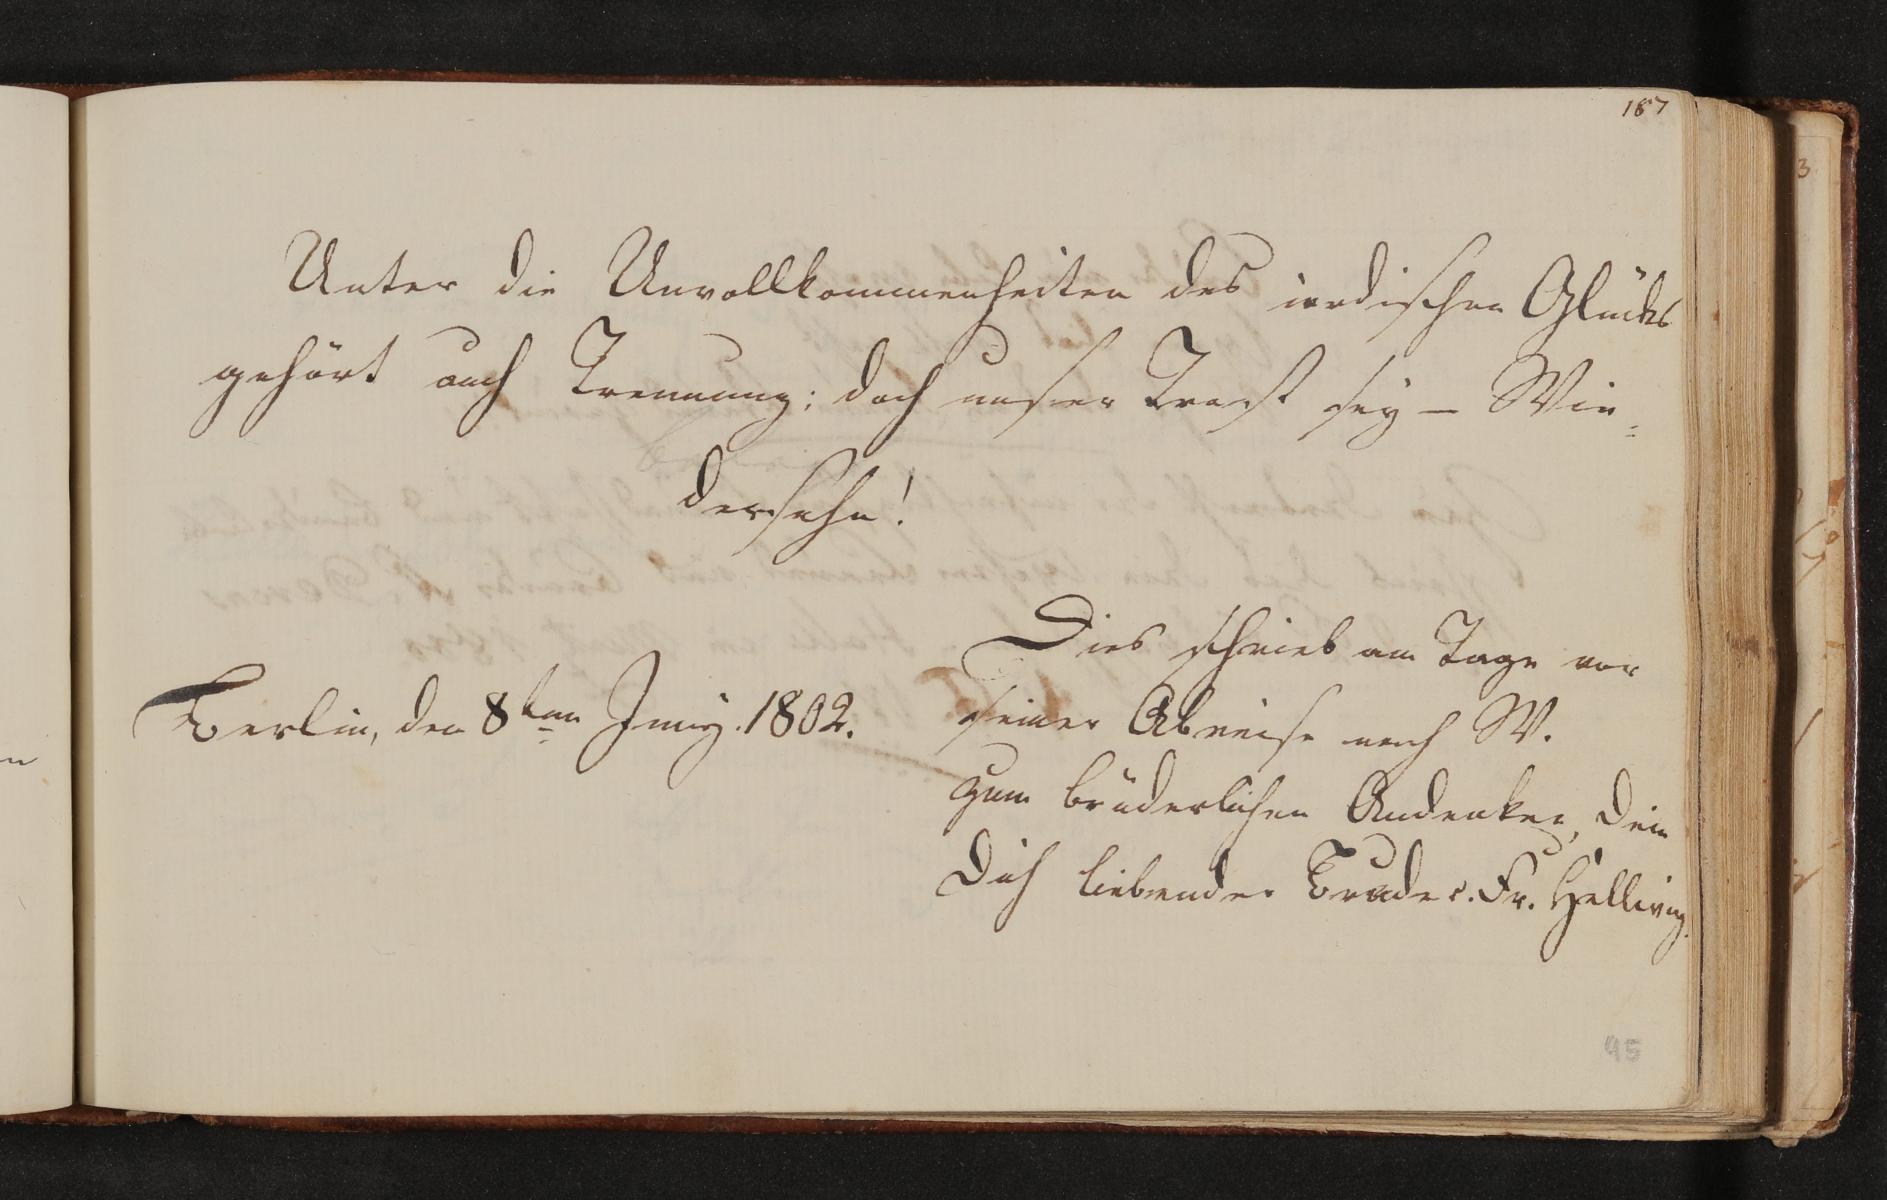 187
Unter die Unvollkommenheiten des irdischen Glücks
gehört auch Trennung; doch unser Trost sey – Wie-
dersehn!
Berlin, den 8ten Juny. 1802.
Dies schrieb am Tage vor
seiner Abreise nach W.
zum brüderlichen Andenken, Dein
Dich liebender Bruder. Fr. Hellwig.
95